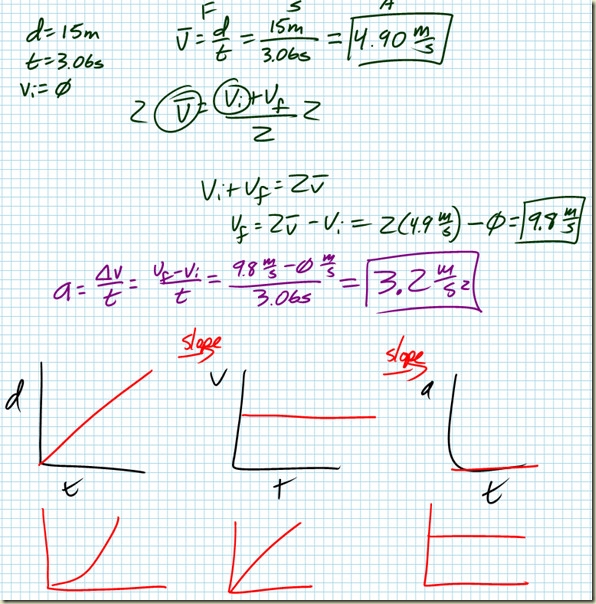 F S A
d = 15m
t = 3.06s
vi = ϕ
v̄ = d/t = 15m/3.06s = 4.90 m/s
2 v̄ = (vi + vf)/2 2
vi + vf = 2v̄
vf = 2v̄ - vi = 2(4.9 m/s) - ϕ = 9.8 m/s
a = Δv/t = (vf - vi)/t = (9.8 m/s - ϕ m/s)/3.06s = 3.2 m/s²
slope slope
d v a
t t t